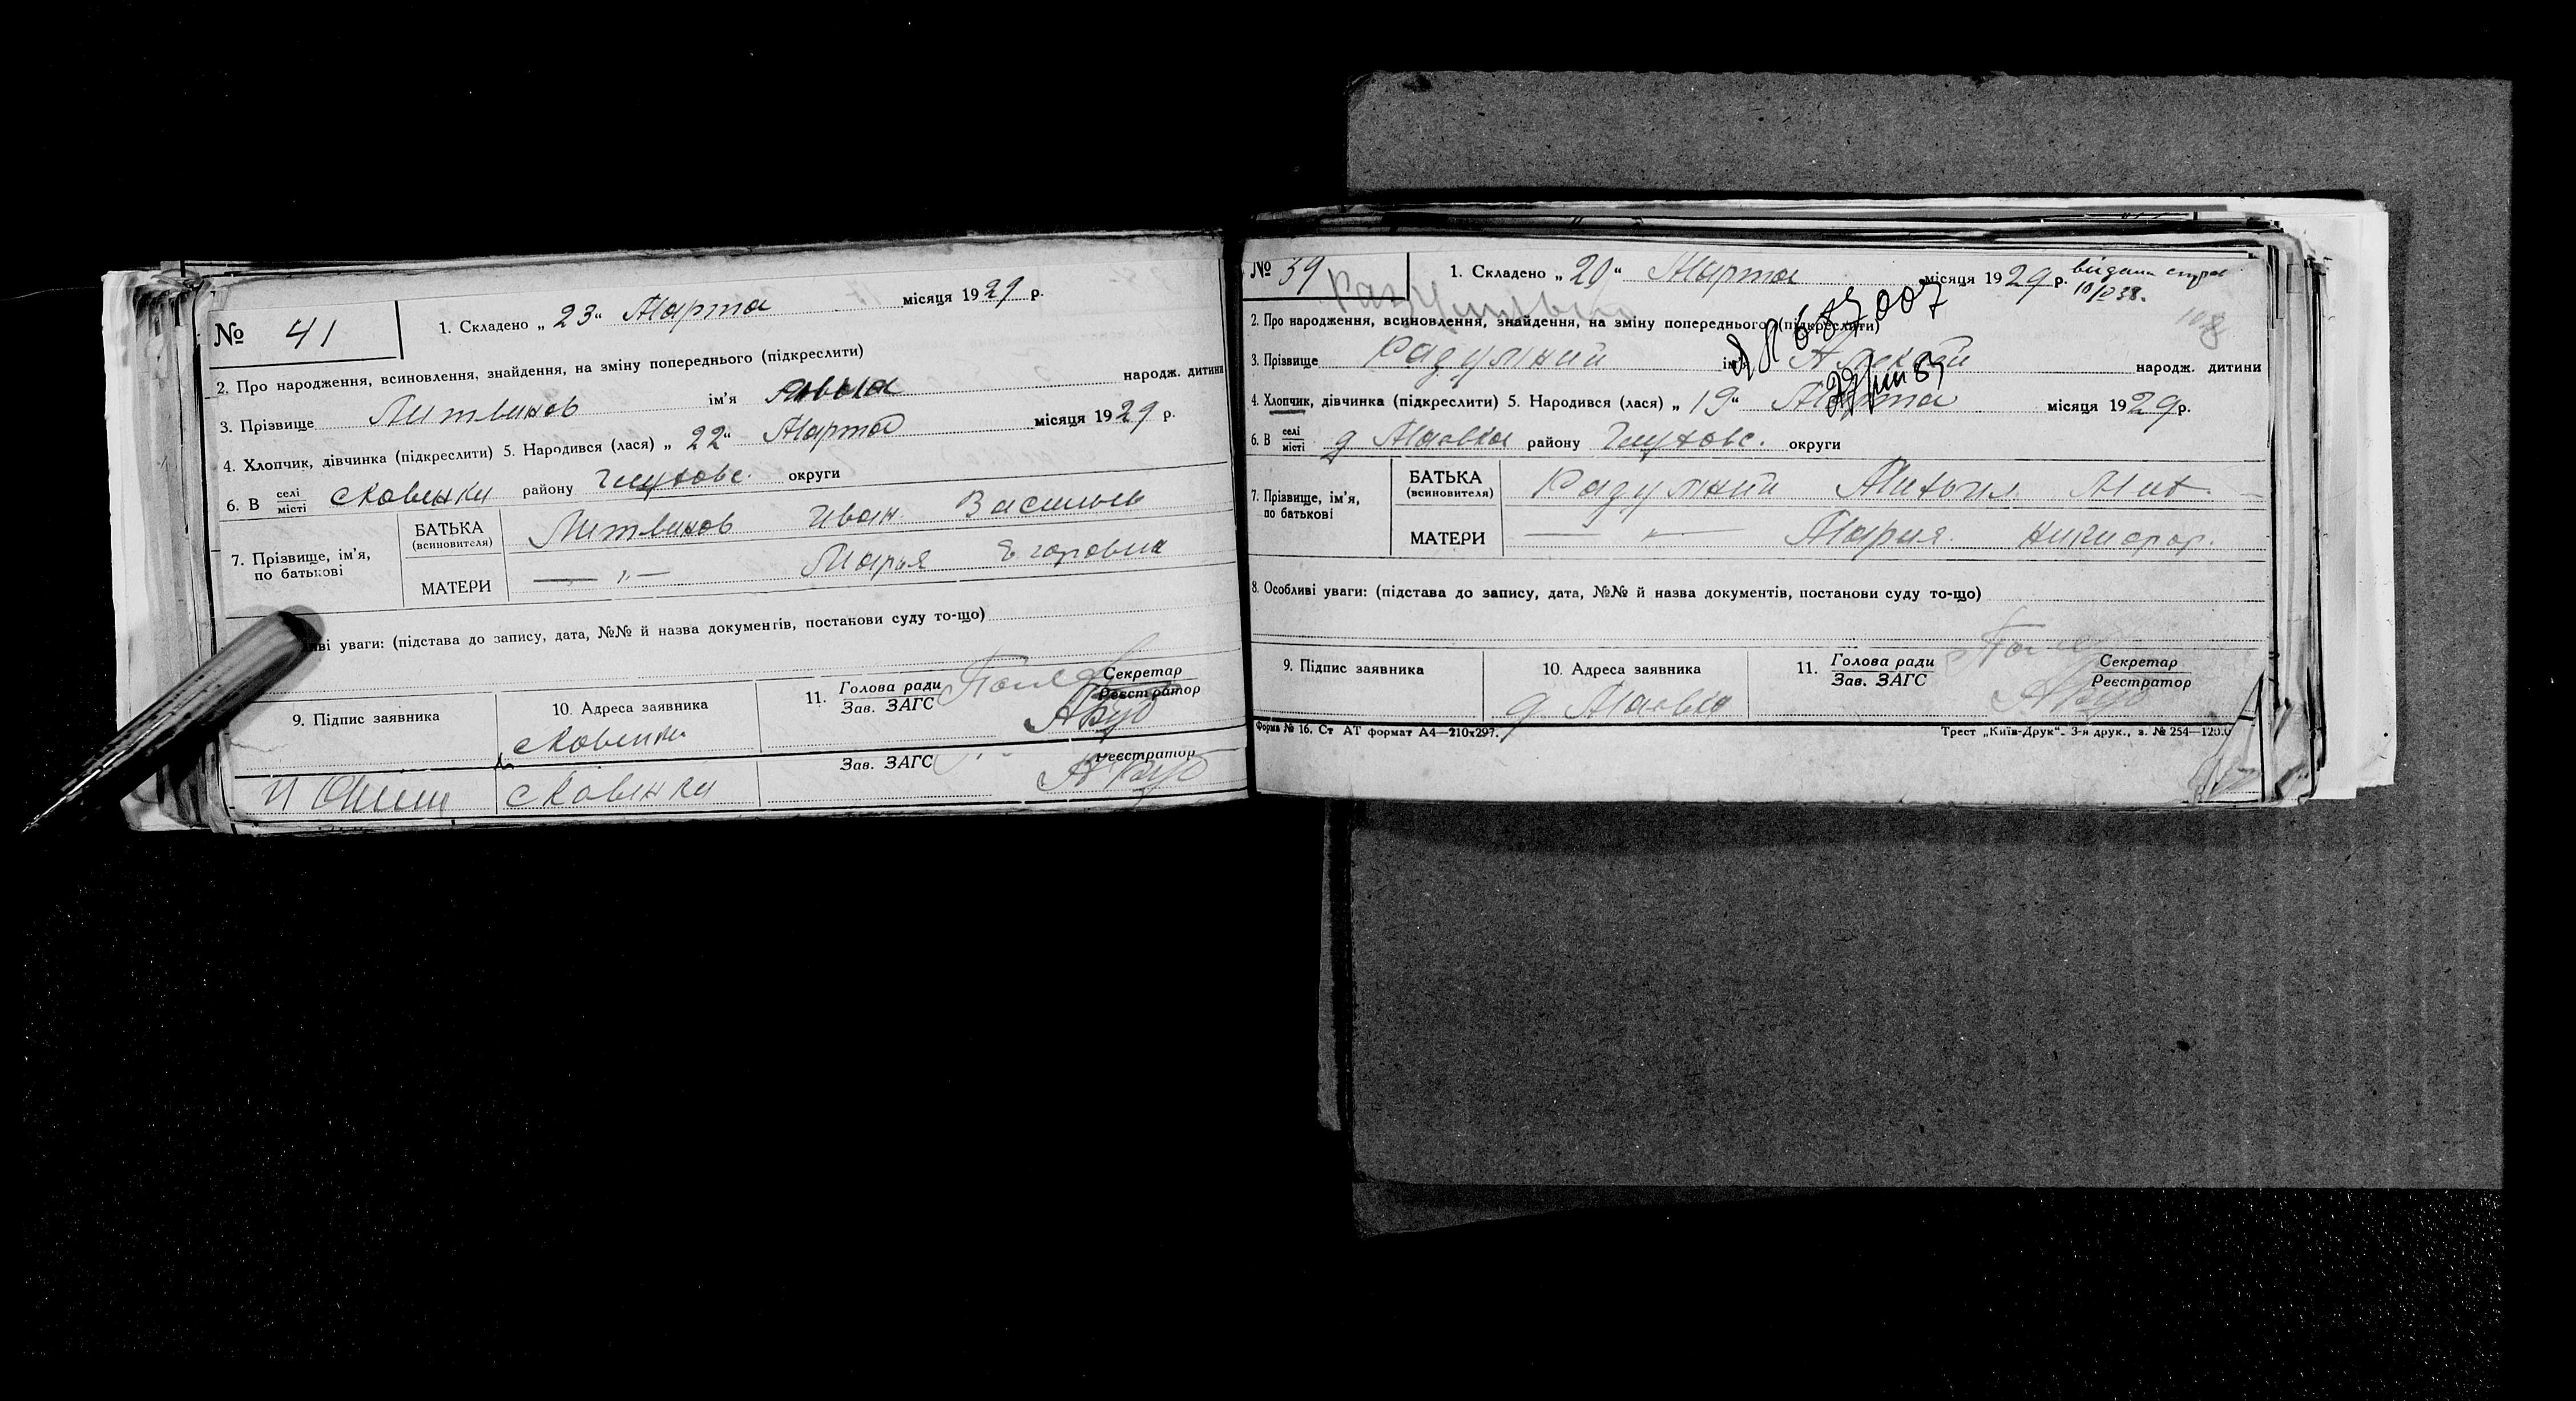 № 41
1. Складено „ 23 “ Марта місяця 19 29 р.
2. Про народження, всиновлення, знайдення, на зміну попереднього (підкреслити)
3. Прізвище Литвинов ім’я народж. дитини
4. Хлопчик, дівчинка (підкреслити) 5. Народився (лася) „ 22 “ Марта місяця 19 29 р.
6. В селі місті сковенки району Глуховс. округи
7. Прізвище, ім’я, по батькові
БАТЬКА (всиновителя) Литвинов Иван Васильев
МАТЕРИ — „ — Марья Егоровна
уваги: (підстава до запису, дата, №№ й назва документів, постанови суду то-що)
9. Підпис заявника
10. Адреса заявника
сковенки
11. Голова ради
Зав. ЗАГС
Секретар
Реєстратор
Зав. ЗАГС
Реєстратор
сковенки
№ 39
1. Складено „ 20 “ Марта місяця 19 29 р.
2. Про народження, всиновлення, знайдення, на зміну попереднього (підкреслити)
687007
3. Прізвище Разумний ім’я народж. дитини
4. Хлопчик, дівчинка (підкреслити) 5. Народився (лася) „ 19 “ Марта місяця 19 29 р.
6. В селі місті району Глуховс. округи
7. Прізвище, ім’я, по батькові
БАТЬКА (всиновителя) Разумний Михаил Мих.
МАТЕРИ — „ — Мария Никифор.
8. Особливі уваги: (підстава до запису, дата, №№ й назва документів, постанови суду то-що)
9. Підпис заявника
10. Адреса заявника
11. Голова ради
Зав. ЗАГС
Секретар
Реєстратор
Форма № 16. Ст АТ формат А4—210х297.
Трест „Київ-Друк“. 3-я друк., з. № 254—120.0